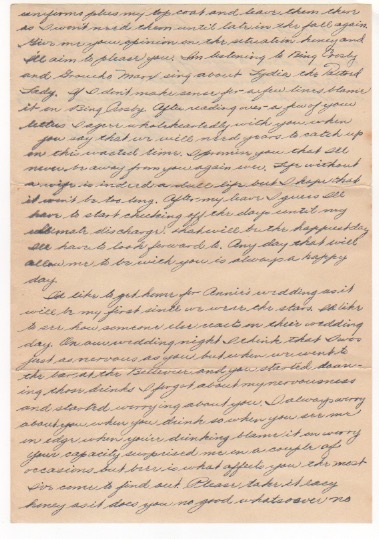 uniforms plus my top coat and leave them there
as I wont need them until late in the fall again.
Give me your opinion on the situation honey and
Ill aim to please you. Im listening to Bing Crosby
and Groucho Marx sing about Lydia the Tatood
Lady. If I don't make sense for a few lines blame
it on Bing Crosby. After reading over a few of your
letters I agree wholeheartedly with you when
you say that we will need years to catch up
on this wasted time. I promise you that Ill
never be away from you again ever. Life without
a wife is indeed a dull life but I hope that
it won't be too long. After my leave I guess Ill
have to start checking off the days until my
ultimate discharge. that will be the happiest day
Ill have to look forward to. Any day that will
allow me to be with you is always a happy
day.
Id like to get home for Annie's wedding as it
will be my first since we were the stars. Id like
to see how someone else reacts on their wedding
day. On our wedding night I think that I was
just as nervous as you, but when we went to
the bar at the Bellevue and you started down-
ing those drinks I forgot about my nervousness
and started worrying about you. I always worry
about you when you drink so when you see me
on edge when you're drinking blame it on worry
Your capacity surprised me on a couple of
occasions but beer is what affects you the most
Ive come to find out. Please take it easy
honey as it does you no good whatsoever no